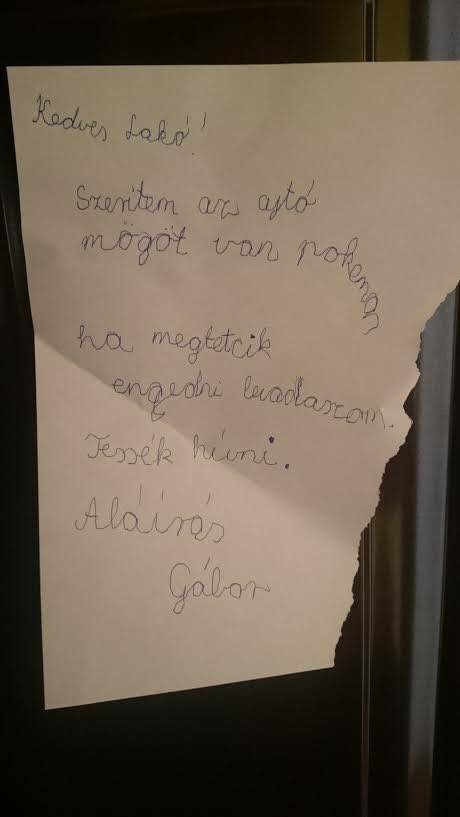 Kedves Lakó!
Szeritem az ajtó
mögöt van pokeman
ha megtetcik
engedni levadlaszom.
Tessék hívni.
Aláírás
Gábor